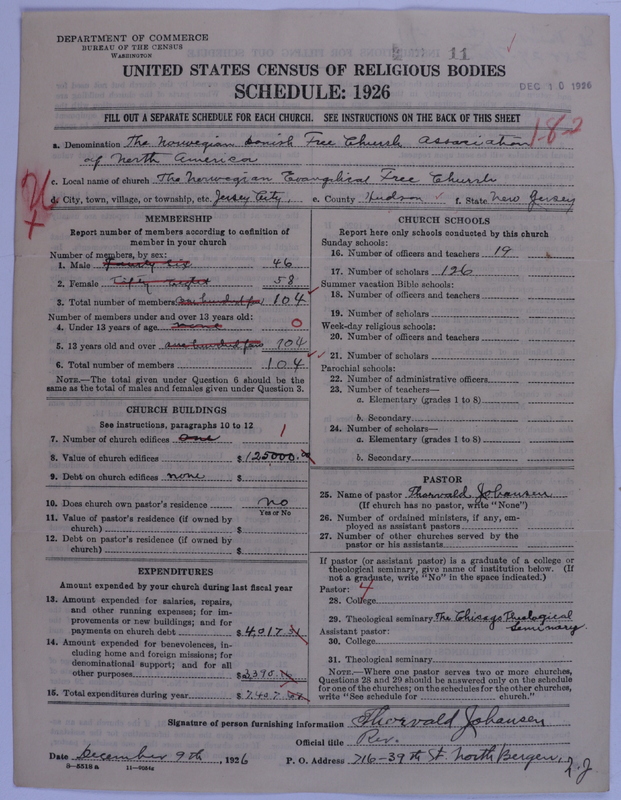 DEPARTMENT OF COMMERCE
BUREAU OF THE CENSUS
WASHINGTON
11
UNITED STATES CENSUS OF RELIGIOUS BODIES
SCHEDULE: 1926
DEC 10 1926
FILL OUT A SEPARATE SCHEDULE FOR EACH CHURCH. SEE INSTRUCTIONS ON THE BACK OF THIS SHEET
18-2
a. Denomination The Norwegian Danish Free Church Association
of North America
c. Local name of church The Norwegian Evangelical Free Church
d. City, town, village, or township, etc. Jersey City, e. County Hudson f. State New Jersey
MEMBERSHIP
Report number of members according to definition of
member in your church
Number of members, by sex:
1. Male forty six 46
2. Female fifty eight 58
3. Total number of members 104
Number of members under and over 13 years old:
4. Under 13 years of age none 0
5. 13 years old and over 104
6. Total number of members 104
NOTE.—The total given under Question 6 should be the
same as the total of males and females given under Question 3.
CHURCH BUILDINGS
See instructions, paragraphs 10 to 12
7. Number of church edifices one 1
8. Value of church edifices $125000.00
9. Debt on church edifices none $
10. Does church own pastor's residence no
Yes or No
11. Value of pastor's residence (if owned by
church) $
12. Debt on pastor's residence (if owned by
church) $
EXPENDITURES
Amount expended by your church during last fiscal year
13. Amount expended for salaries, repairs,
and other running expenses; for im-
provements or new buildings; and for
payments on church debt $4,017
14. Amount expended for benevolences, in-
cluding home and foreign missions; for
denominational support; and for all
other purposes $3,390
15. Total expenditures during year $7,407
CHURCH SCHOOLS
Report here only schools conducted by this church
Sunday schools:
16. Number of officers and teachers 19
17. Number of scholars 126
Summer vacation Bible schools:
18. Number of officers and teachers
19. Number of scholars
Week-day religious schools:
20. Number of officers and teachers
21. Number of scholars
Parochial schools:
22. Number of administrative officers
23. Number of teachers—
a. Elementary (grades 1 to 8)
b. Secondary
24. Number of scholars—
a. Elementary (grades 1 to 8)
b. Secondary
PASTOR
25. Name of pastor Thorvald Johansen
(If church has no pastor, write "None")
26. Number of ordained ministers, if any, em-
ployed as assistant pastors
27. Number of other churches served by the
pastor or his assistants
If pastor (or assistant pastor) is a graduate of a college or
theological seminary, give name of institution below. (If
not a graduate, write "No" in the space indicated.)
Pastor:
28. College
29. Theological seminary The Chicago Theological
Seminary.
Assistant pastor:
30. College
31. Theological seminary
NOTE.—Where one pastor serves two or more churches,
Questions 28 and 29 should be answered only on the schedule
for one of the churches; on the schedules for the other churches,
write "See schedule for church."
Signature of person furnishing information Thorvald Johansen
Official title Rev.
Date December 9th, 1926 P. O. Address 716-39th St. North Bergen, N.J.
8—5518a 11—9564